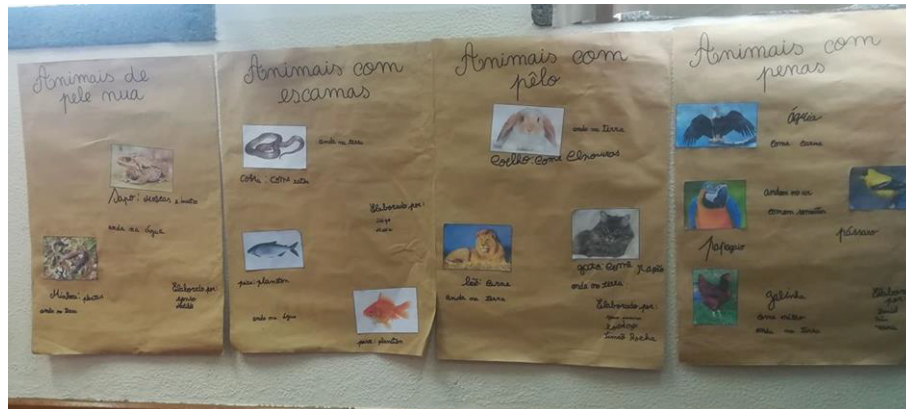 Animais de
pele nua
Sapo: moscas e
anda na água
Minhoca:
anda na terra
Elaborado por:
Animais com
escamas
anda na terra
Cobra: come ratos
Elaborado por:
peixe: plancton
anda na água
peixe: plancton
Animais com
pêlo
anda na terra
Coelho: Come Cenouras
leão: Carne
anda na terra
gato come ração
anda na terra
Elaborado por:
Rodrigo
Simão Rocha
Animais com
penas
águia
come carne
andam no ar
comem sementes
papagaio
pássaro
galinha
come milho
anda na terra
por: